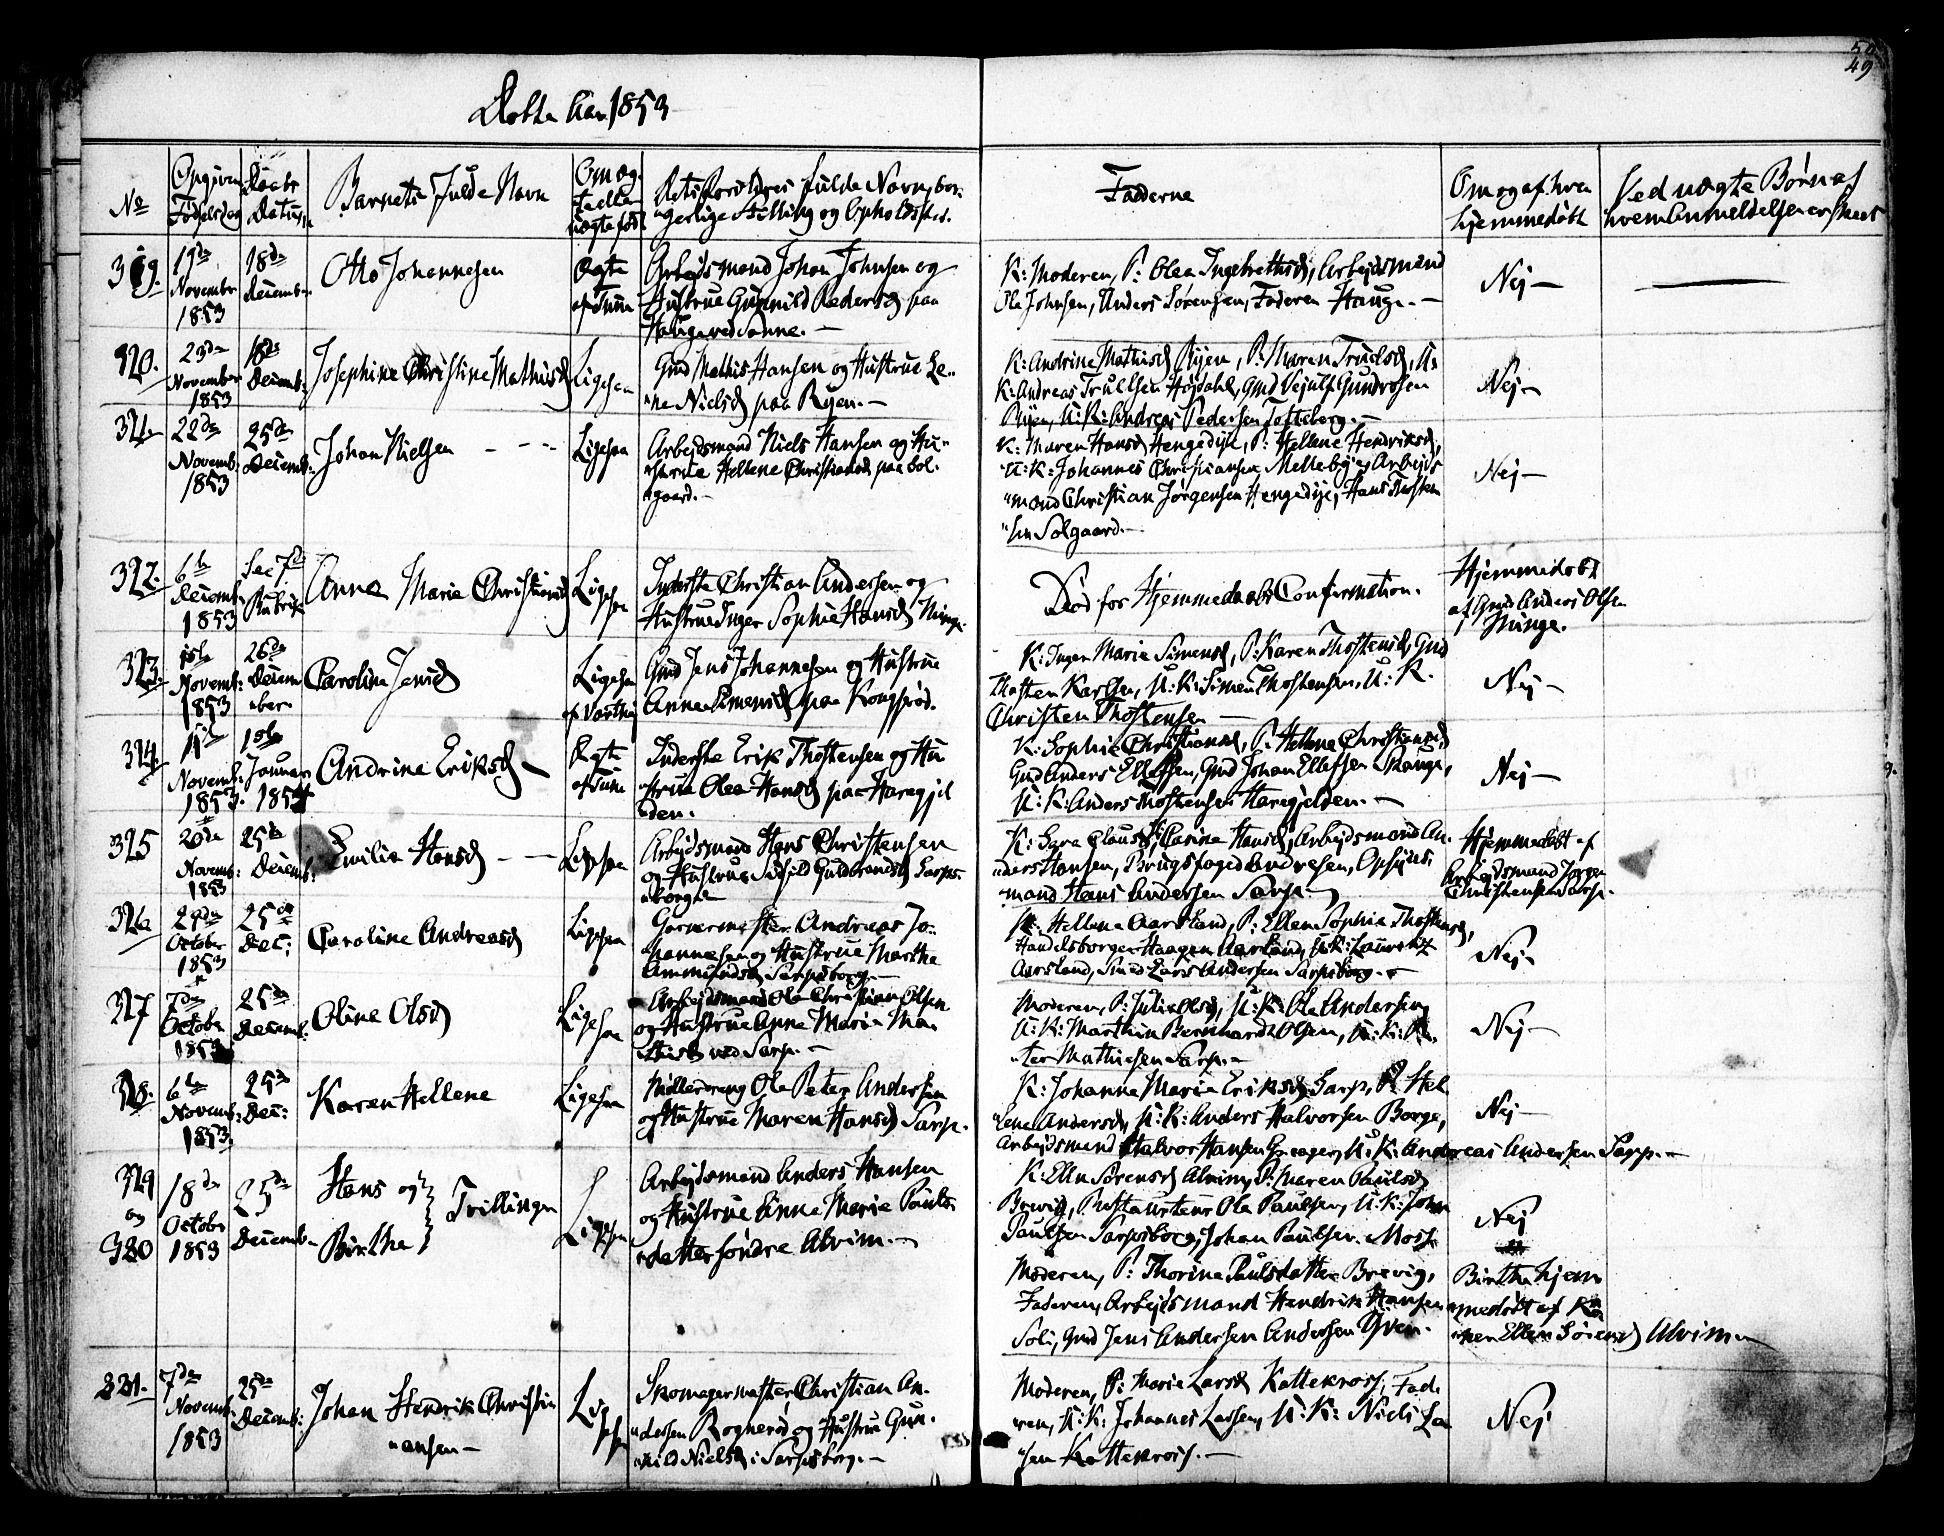 50
49
Døbte Aar 1853
No
Opgiven Fødselsdag
Daabs Datum
Barnets Fulde Navn
Om ægte eller uægte født
Dets Forældres fulde Navn, bor-
gerlige Stilling og Opholdssted.
Fadderne
Om og af hvem
hjemmedøbt
Ved uægte Børn af
hvem Anmeldelsen er skeet
319.
19de
Novembr
1853
18de
Decemb:
Otto Johannesen
Ægte
af
Arbejdsmand Johan Johnsen og
Hustrue Gunnild Pedersd paa
Hauge ved Sanne. —
K: Moderen, P: Olea Ingebrethsd, Arbejdsmand
Ole Johnsen, Anders Sørensen, Faderen Hauge. —
Nej —
320.
23de
November
1853
18de
Decemb:
Josephine Christine Mathisd
Ligesaa
Gmd Mathis Hansen og Hustrue Le-
ne Nielsd paa Ryen. —
K: Andrine Mathisd Ryen, P: Maren Truelsd, U:
K: Andreas Truelsen Højdahl, Gmd Vejulf Gundersen
Ryen, U: K: Andreas Pedersen Tofteberg. —
Nej —
321.
22de
Novemb:
1853
25de
Decemb:
Johan Nielsen - - -
Ligesaa
Arbejdsmand Niels Hansen og Hu-
strue Hellene Christiansd paa Sol-
gaard. —
K: Maren Hansd Hengedije, P: Hellene Hendriksd,
U: K: Johannes Christiansen Mellebye, Arbejds
mand Christian Jørgensen Hengedije, Hans Thosten
sen Solgaard. —
Nej —
322.
6te
Decemb:
1853
See 7de
Rubrik
Anne Marie Christiansd
Ligesaa
Inderste Christian Andersen og
Hustrue Inger Sophie Hansd Ninge.
Død før Hjemmedaabs Confirmation.
Hjemmedøbt
af Gmd Anders Olsen
Ninge.
323.
Novemb:
1853
26de
Decem
ber
Caroline Jensd
Ligesaa
af Varteig
Gmd Jens Johannesen og Hustrue
Anne Simensd paa Kongsrød.
K: Inger Marie Simensd, P: Karen Thostensd, Gmd
Thosten Karlsen, U: K: Simen Thostensen, U: K.
Christen Thostensen —
Nej —
324.
Novemb:
1853.
Januar
1854
Andrine Eriksd —
Ægte
af
Inderste Erik Thostensen og Hu
strue Olea Hansd paa Haregjel
den.
K: Sophie Christiansd, P: Hellene Christiansd,
Gmd Anders Ellefsen, Gmd Johan Ellefsen Skauge,
U: K: Anders Thostensen Haregjelden. —
Nej —
325
20de
Novemb:
1853
25de
Decemb:
Emilie Hansd - —
Ligesaa
Arbejdsmand Hans Christensen
og Hustrue Sidsild Guldbrandsd Sarps-
borg
K: Sara Clausd, P: Carine Hansd, Arbejdsmand An-
ders Hansen, Brugsfoged Andresen, Opsyns-
mand Hans Andersen Sarp. —
Hjemmedøbt af
Arbejdsmand Jørgen
Christensen Sarp.
326
29de
October
1853
25de
Dec:
Caroline Andreasd
Ligesaa
Garvermester Andreas Jo-
hannesen og Hustrue Marthe
Ammundsd Sarpsborg. —
K: Hellene Aarsland, P: Ellen Sophie Thostensd,
Handelsborger Haagen Aarsland, U: K: Lauretz
Aarsland, Smed Lars Andersen Sarpsborg. —
Nej —
327
7de
October
1853
25de
Decemb:
Oline Olsd
Ligesaa
Arbejdsmand Ole Christian Olsen
og Hustrue Anne Marie Ma-
thisd ved Sarp. —
Moderen, P: Julie Olsd, U: K: Ole Andersen,
U: K: Marthin Bernhardt Olsen, U: K: Pe-
ter Mathiesen Sarp. —
Nej —
328.
6te
Novemb:
1853
25de
Dec:
Karen Hellene
Ligesaa
Møllerdreng Ole Peter Andersen
og Hustrue Maren Hansd Sarp.
K: Johanne Marie Eriksd Sarp, P: Hel
lene Andersd, U: K: Anders Halvorsen Borge,
Arbejdsmand Halvor Hansen Greager, U: K: Andreas Andersen Sarp. —
Nej —
329
og
330
18de
October
1853
25de
Decemb:
Hans og
Birthe
Tvillinger
Ligesaa
Arbejdsmand Anders Hansen
og Hustrue Anne Marie Pauls
datter søndre Alvim. —
K: Ellen Sørensd Alvim, P: Maren Paulsd
Brevig, Restaurateur Ole Paulsen, U: K: John
Paulsen Sarpsborg, Johan Paulsen Moss.
Moderen, P: Thorine Paulsdatter Brevig,
Faderen, Arbejdsmand Hendrik Hansen
Soli, Gmd Jens Andersen Andersen Yven.
Nej
Birthe hjem
medøbt af Ko
nen Ellen Sørensd Alvim —
331.
7de
Novemb:
1853
25de
Decemb:
Johan Hendrik Christi
ansen —
Ligesaa
Skomagermester Christian An-
dersen Rognerød og Hustrue Gun-
nild Nielsd i Sarpsborg. —
Moderen, P: Marie Larsd Kattekross, Fade
ren, U: K: Johannes Larsen, U: K: Niels Lar
sen Kattekross. —
Nej